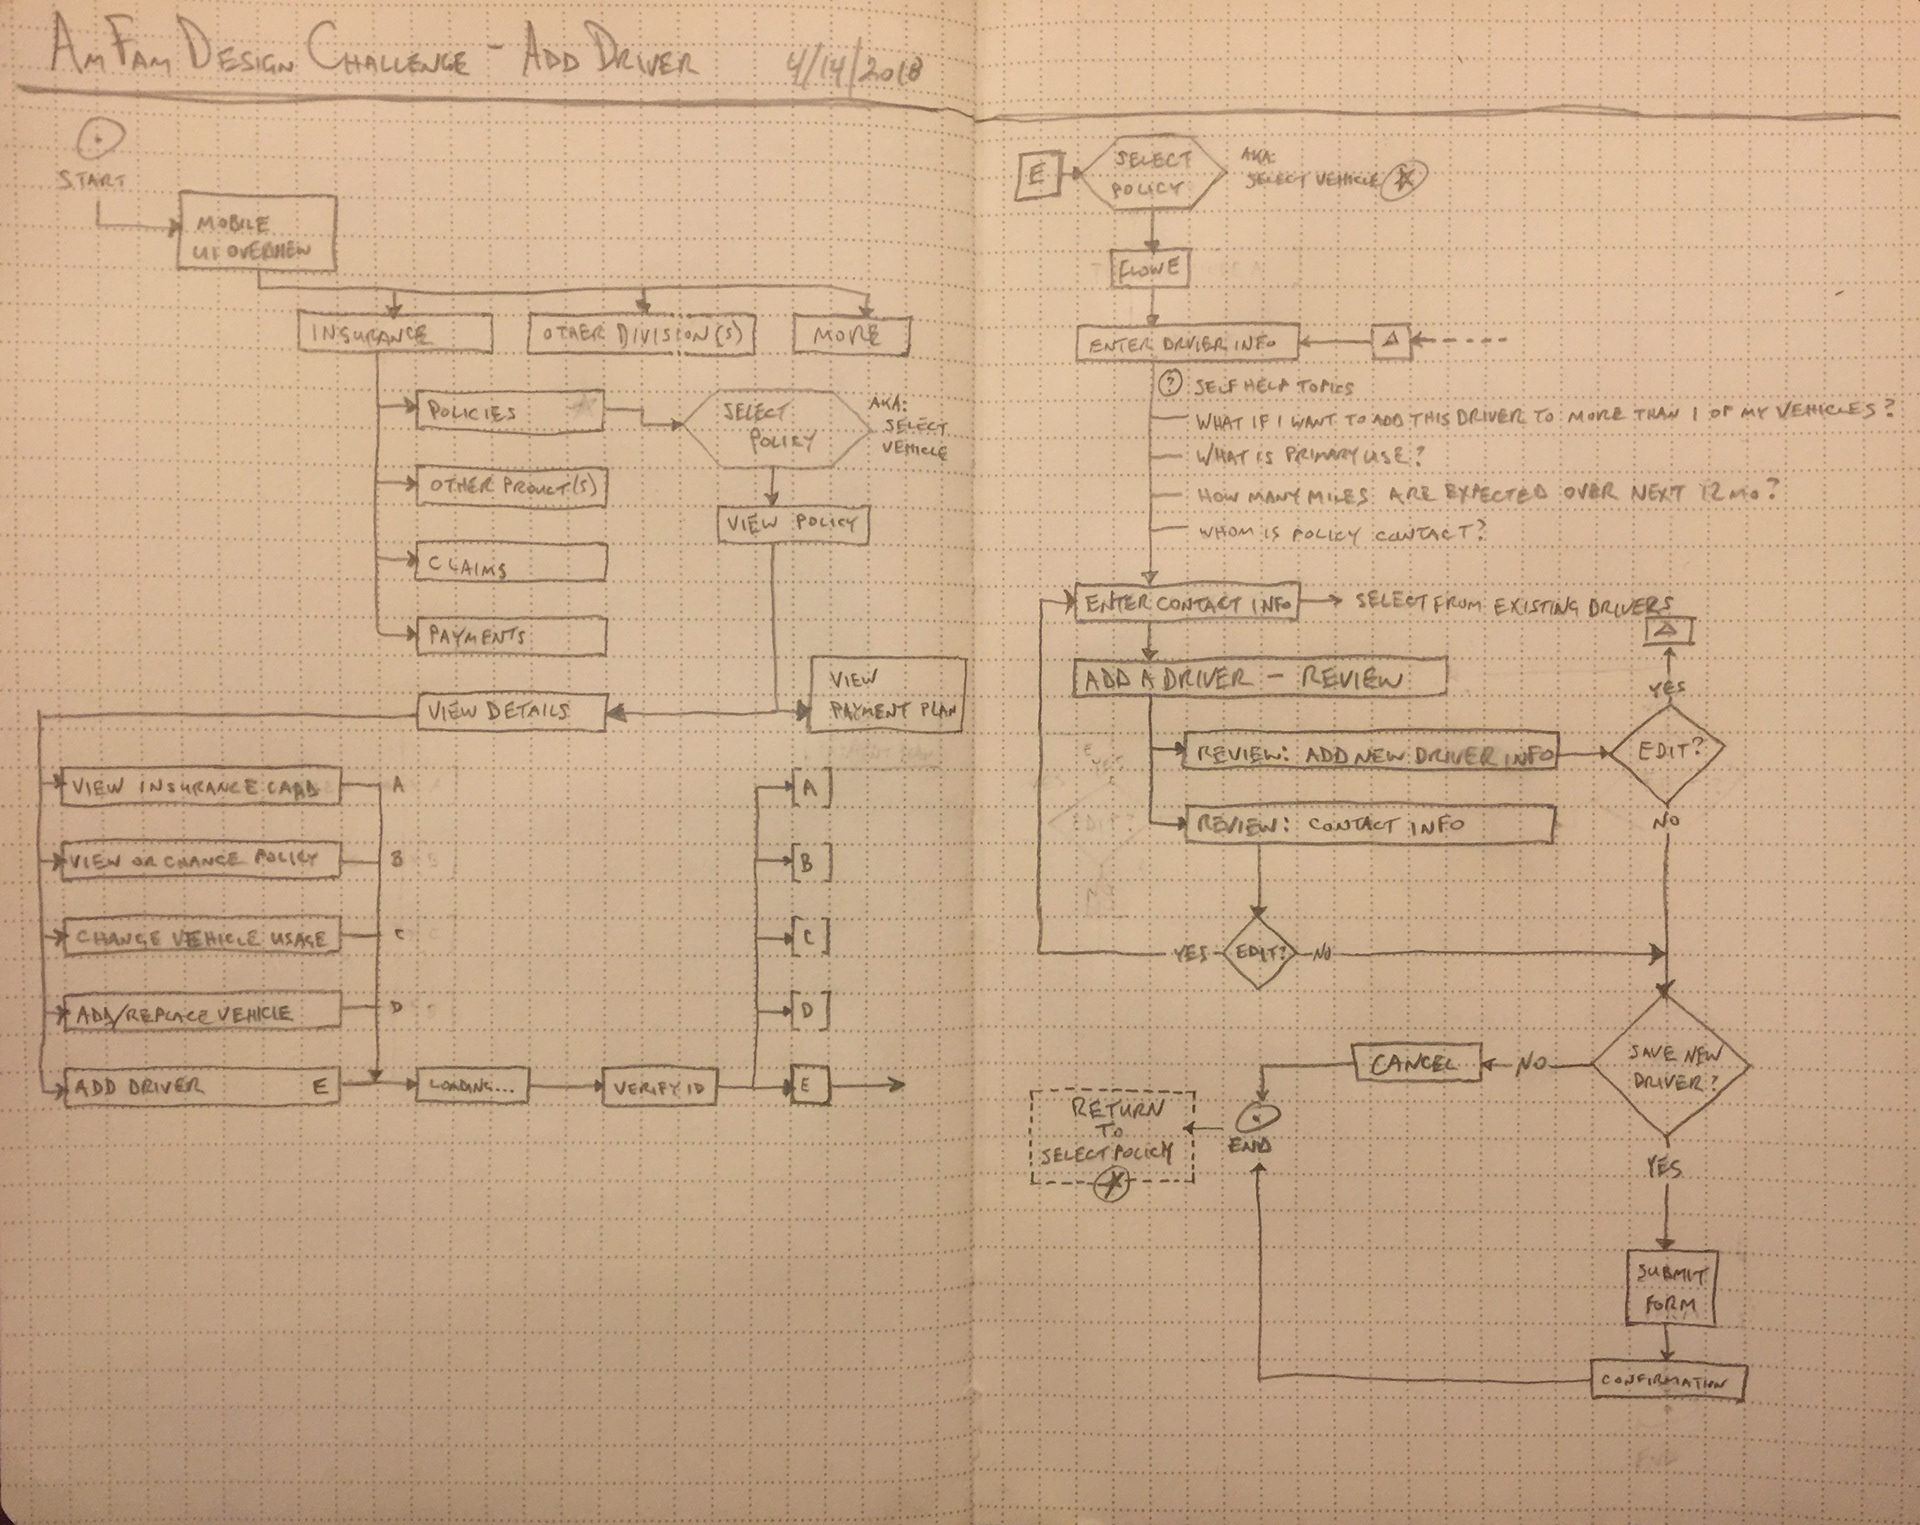 AMFAM DESIGN CHALLENGE - ADD DRIVER 4/14/2018
START
MOBILE
UI OVERVIEW
INSURANCE
OTHER DIVISION(S)
MORE
POLICIES
SELECT
POLICY
AKA:
SELECT
VEHICLE
OTHER PRODUCT(S)
VIEW POLICY
CLAIMS
PAYMENTS
VIEW DETAILS
VIEW
PAYMENT PLAN
VIEW INSURANCE CARD A
VIEW OR CHANGE POLICY B
CHANGE VEHICLE USAGE C
ADD/REPLACE VEHICLE D
ADD DRIVER E
LOADING...
VERIFY ID
A
B
C
D
E
E
SELECT
POLICY
AKA:
SELECT VEHICLE
ENTER DRVIER INFO
? SELF HELP TOPICS
WHAT IF I WANT TO ADD THIS DRIVER TO MORE THAN 1 OF MY VEHICLES?
WHAT IS PRIMARY USE?
HOW MANY MILES ARE EXPECTED OVER NEXT 12 MO?
WHOM IS POLICY CONTACT?
ENTER CONTACT INFO
SELECT FROM EXISTING DRIVERS
ADD A DRIVER - REVIEW
YES
REVIEW: ADD NEW DRIVER INFO
EDIT?
NO
REVIEW: CONTACT INFO
YES
EDIT?
NO
SAVE NEW
DRIVER?
NO
CANCEL
END
RETURN
TO
SELECT POLICY
YES
SUBMIT
FORM
CONFIRMATION